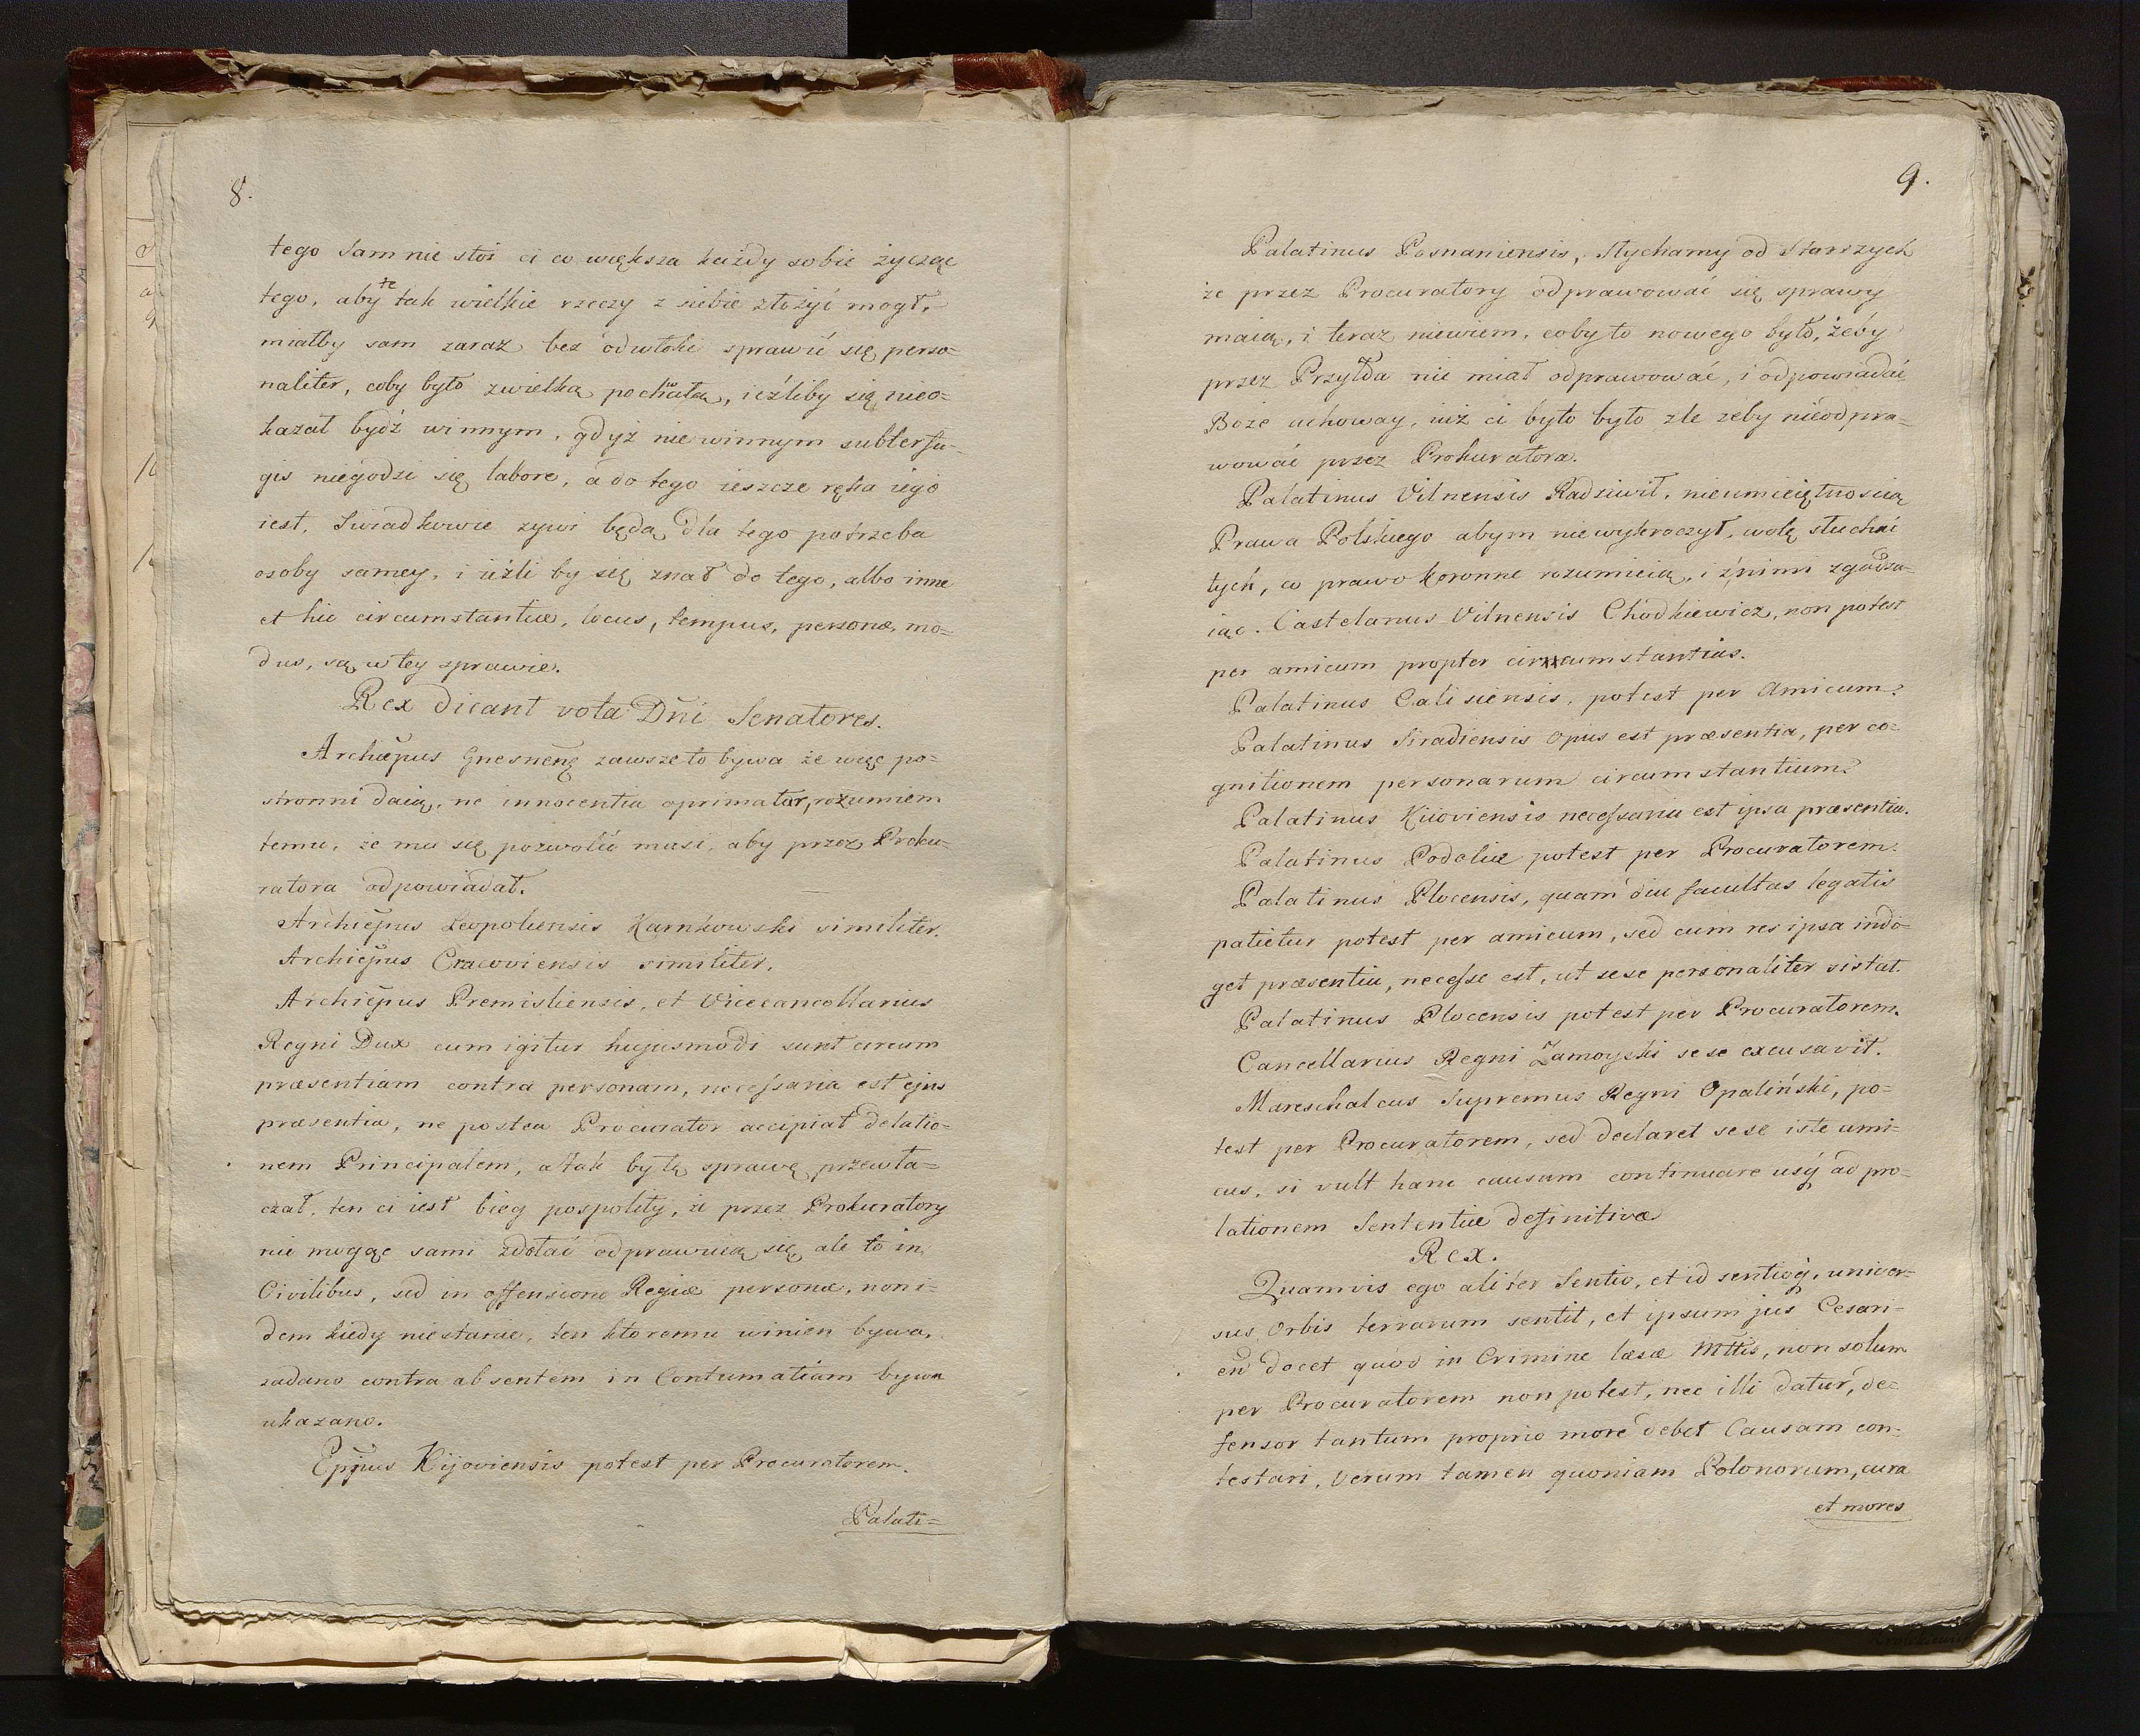 8.
tego sam nie stoi ci co większa każdy sobie życząc
tego, aby te tak wielkie rzeczy z siebie złożyć mogł,
miałby sam zaraz bez odwłoki sprawić się perso=
naliter, coby było zwielką pochwałą, ieźliby się nieo=
kazał bydź winnym, gdyż niewinnym subterfu=
gis niegodzi się labore, a do tego ieszcze ręka iego
iest, Swiadkowie zywi będą, dla tego potrzeba
osoby samey, i ieźli by się znał do tego, albo inne
et hic circumstantiæ, locus, tempus, personæ, mo=
dus, są w tey sprawie.
Rex dicant vota Dñi Senatores.
Archiepus Gnesnenẽ zawsze to bywa że więc po=
stronni daią, ne innocentia oprimatur, rozumiem
temu, że mu się pozwolić musi, aby przez Proku=
ratora odpowiadał.
Archiepus Leopoliensis Karnkowski similiter.
Archiepus Cracoviensis similiter.
Archiepus Premisliensis, et Vicecancellarius
Regni Dux cum igitur hujusmodi sunt circum
præsentiam contra personam, necessaria est ejus
præsentia, ne postea Procurator accipiat delatio=
nem Principalem, a tak by tę sprawę przewła=
czał, ten ci iest bieg pospolity, że przez Prokuratory
nie mogąc sami zdołać odprawuią się, ale to in
Civilibus, sed in offensione Regiæ personæ, non i=
dem kiedy niestanie, ten ktoremu winien bywa,
zadano contra absentem in Contumatiam bywa
ukazano.
Eppus Kijoviensis potest per Procuratorem.
Palati=
9.
Palatinus Posnaniensis, Słychamy od Starszych
że przez Procuratory odprawować się sprawy
maią, i teraz niewiem, coby to nowego było, żeby
przez Przyłda nie miał odprawować, i odpowiadać
Boże uchoway, iuż ci było było zle zeby nieodpra=
wować przez Prokuratora.
Palatinus Vilnensis Radziwił, nieumieiętnoscią
Prawa Polskiego abym niewykroczył, wolę słuchać
tych, co prawo koronne rozumieią, i z nimi zgadza=
iąc. Castelanus Vilnensis Chodkiewicz, non potest
per amicum propter circumstantias.
Palatinus Calisiensis, potest per Amicum.
Palatinus Siradiensis opus est præsentia, per co=
gnitionem personarum circumstantium.
Palatinus Kiioviensis necessaria est ipsa præsentia.
Palatinus Podoliæ potest per Procuratorem.
Palatinus Plocensis, quam diu facultas legatis
patietur potest per amicum, sed cum res ipsa indi=
get præsentia, necesse est, ut sese personaliter sistat.
Palatinus Plocensis potest per Procuratorem.
Cancellarius Regni Zamoyski sese excusavit.
Mareschalcus Supremus Regni Opaliński, po=
test per Procuratorem, sed declaret sese iste ami=
cus, si vult hanc causam continuare usq ad pro=
lationem Sententiæ definitivæ
Rex.
Quamvis ego aliter Sentio, et id sentioq, univer=
sus Orbis terrarum sentit, et ipsum jus Cesari=
eñ docet quod in Crimine læsæ Mttis, non solum
per Procuratorem non potest, nec illi datur, de=
fensor tantum proprio more debet Causam con=
testari, Verum tamen quoniam Polonorum, cura
et mores